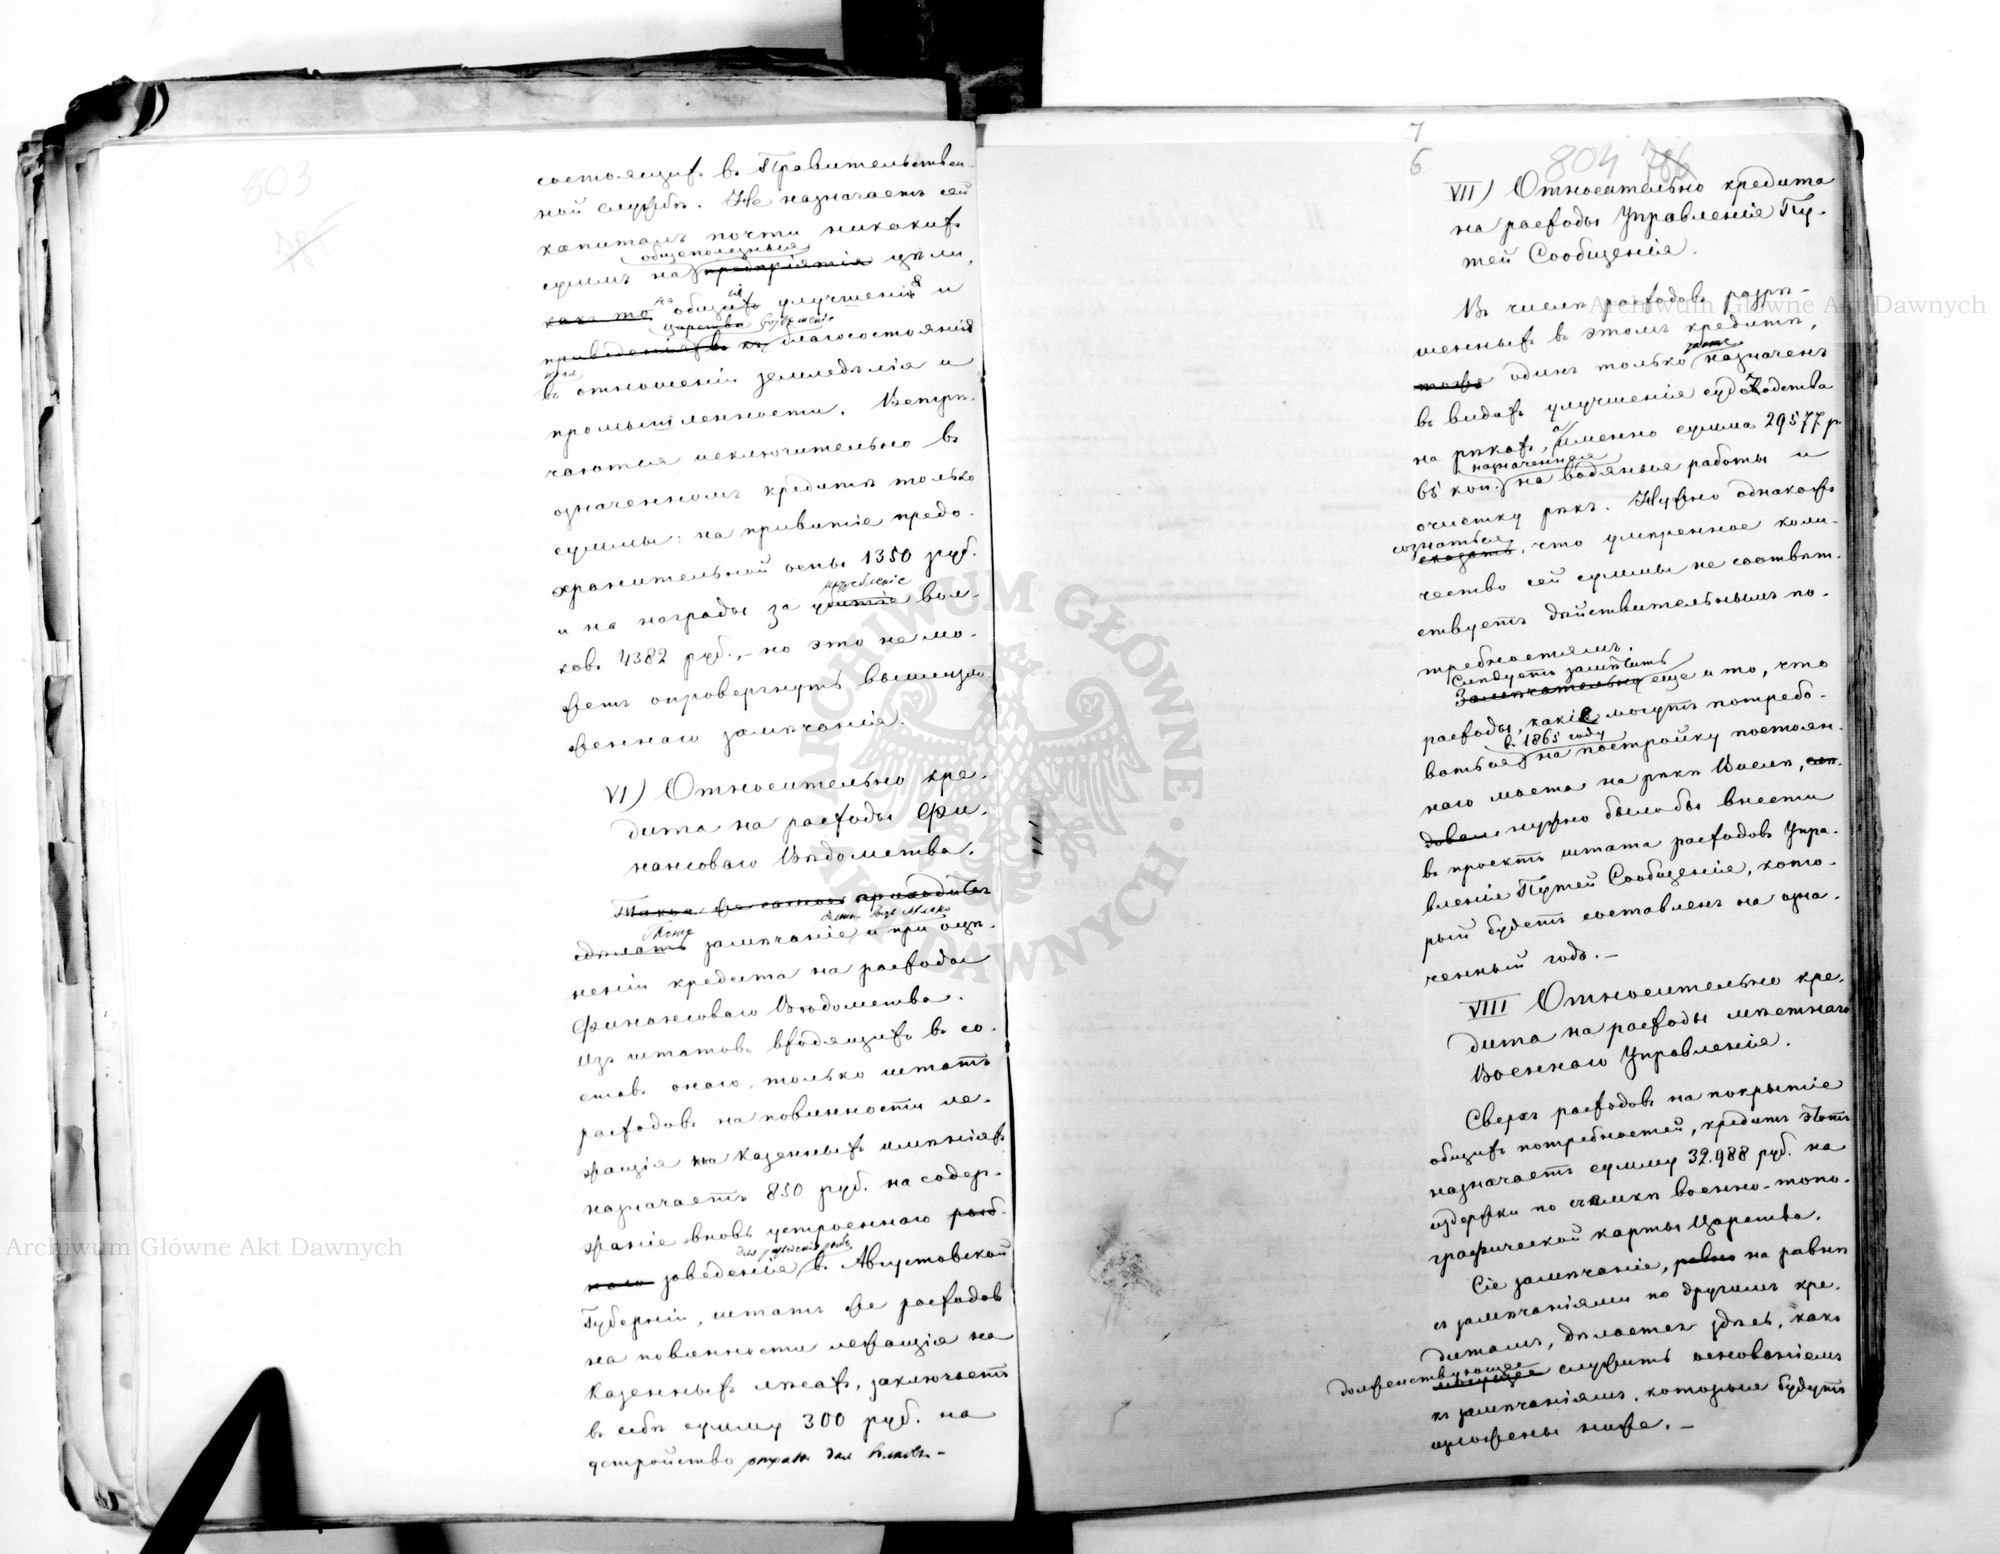 803
785
состоящихъ въ Правительствен-
ной службѣ. Не назначаетъ сей
капиталъ почти никакихъ
общеполезныя
суммъ на предпріятія цѣли,
какъ то на общія улучшенія и
Царства
приведеніе въ благосостояніе
въ отношеніи земледѣлія и
промышленности. Встрѣ-
чаются исключительно въ
означенномъ кредитѣ только
суммы: на привитіе предо-
хранительной оспы 1350 руб.
истребленіе
и на награды за убитіе вол-
ковъ 4382 руб., – но это не мо-
жетъ опровергнуть вышеизло-
женнаго замѣчанія.
VI) Относительно кре-
дита на расходы Фи-
нансоваго Вѣдомства.
Такое же самое приходится
Тоже
сдѣлать замѣчаніе и при оцѣ-
неніи кредита на расходы
Финансоваго Вѣдомства.
Изъ штатовъ входящихъ въ со-
ставъ онаго, только штатъ
расходовъ на повинности ле-
жащія на Казенныхъ имѣніяхъ
назначаетъ 850 руб. на содер-
жаніе вновь устроеннаго рыб-
наго заведенія въ Августовской
Губерніи, штатъ же расходовъ
на повинности лежащія на
Казенныхъ лѣсахъ, заключаетъ
въ себѣ сумму 300 руб. на
устройство для
7
6
804 786
VII) Относительно кредита
на расходы Управленія Пу-
тей Сообщенія.
Въ числѣ расходовъ разрѣ-
шенныхъ въ этомъ кредитѣ,
тоже одинъ только назначенъ
въ видахъ улучшенія судоходства
на рѣкахъ, а именно сумма 29577 р.
назначенная
65 коп. на водяныя работы и
очистку рѣкъ. Нужно однакожъ
сознаться
сказать, что умѣренное коли-
чество сей суммы не соотвѣт-
ствуетъ дѣйствительнымъ по-
требностямъ.
Слѣдуетъ замѣтить
Замѣчательно еще и то, что
расходы, какіе могутъ потребо-
въ 1865 году
ваться на постройку постоян-
наго моста на рѣкѣ Вислѣ, слѣ-
довало нужно было бы внести
въ проектъ штата расходовъ Упра-
вленія Путей Сообщенія, кото-
рый будетъ составленъ на озна-
ченный годъ. –
VIII Относительно кре-
дита на расходы мѣстнаго
Военнаго Управленія.
Сверхъ расходовъ на покрытіе
общихъ потребностей, кредитъ этотъ
назначаетъ сумму 32.988 руб. на
издержки по съемкѣ военно-топо-
графической карты Царства.
Сіе замѣчаніе, равно на равнѣ
съ замѣчаніями по другимъ кре-
дитамъ, дѣлается здѣсь, какъ
долженствующее
могущее служить основаніемъ
къ замѣчаніямъ, которыя будутъ
изложены ниже. –
Archiwum Główne Akt Dawnych
Archiwum Główne Akt Dawnych
ARCHIWUM GŁÓWNE · AKT DAWNYCH ·